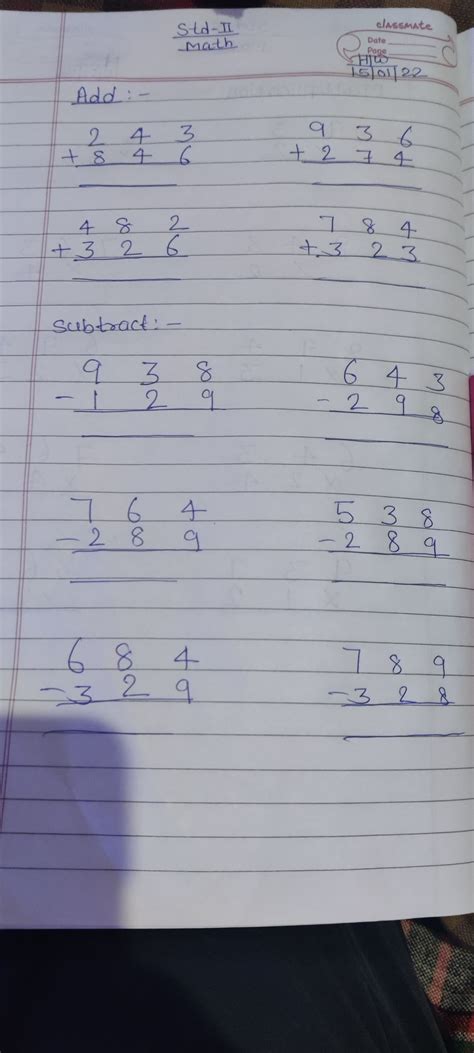 Std-II
Math
classmate
Date
Page
H/W
15/01/22
Add :-
2 4 3
+ 8 4 6
9 3 6
+ 2 7 4
4 8 2
+ 3 2 6
7 8 4
+ 3 2 3
Subtract :-
9 3 8
- 1 2 9
6 4 3
- 2 9 8
7 6 4
- 2 8 9
5 3 8
- 2 8 9
6 8 4
- 3 2 9
7 8 9
- 3 2 8